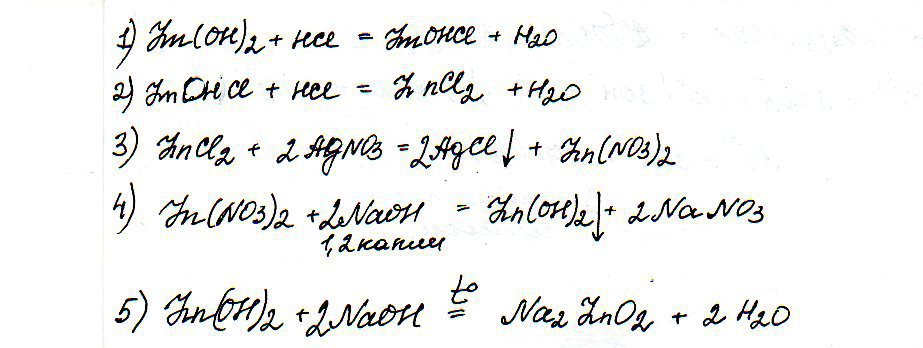 1) Zn(OH)2 + HCl = ZnOHCl + H2O
2) ZnOHCl + HCl = ZnCl2 + H2O
3) ZnCl2 + 2AgNO3 = 2AgCl↓ + Zn(NO3)2
4) Zn(NO3)2 + 2NaOH = Zn(OH)2↓ + 2NaNO3
1,2 капли
t°
5) Zn(OH)2 + 2NaOH = Na2ZnO2 + 2H2O